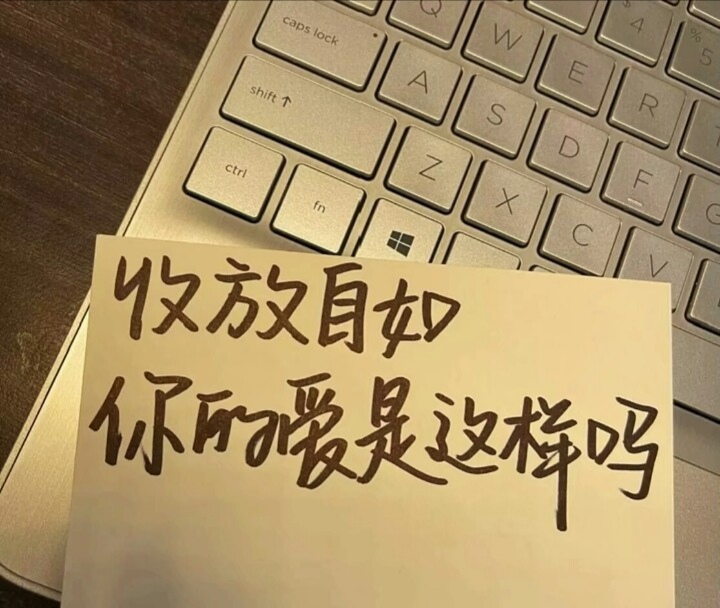 Q W E R 4 % 5
caps lock A S D F
shift ↑ Z X C V
ctrl fn
收放自如
你的爱是这样吗